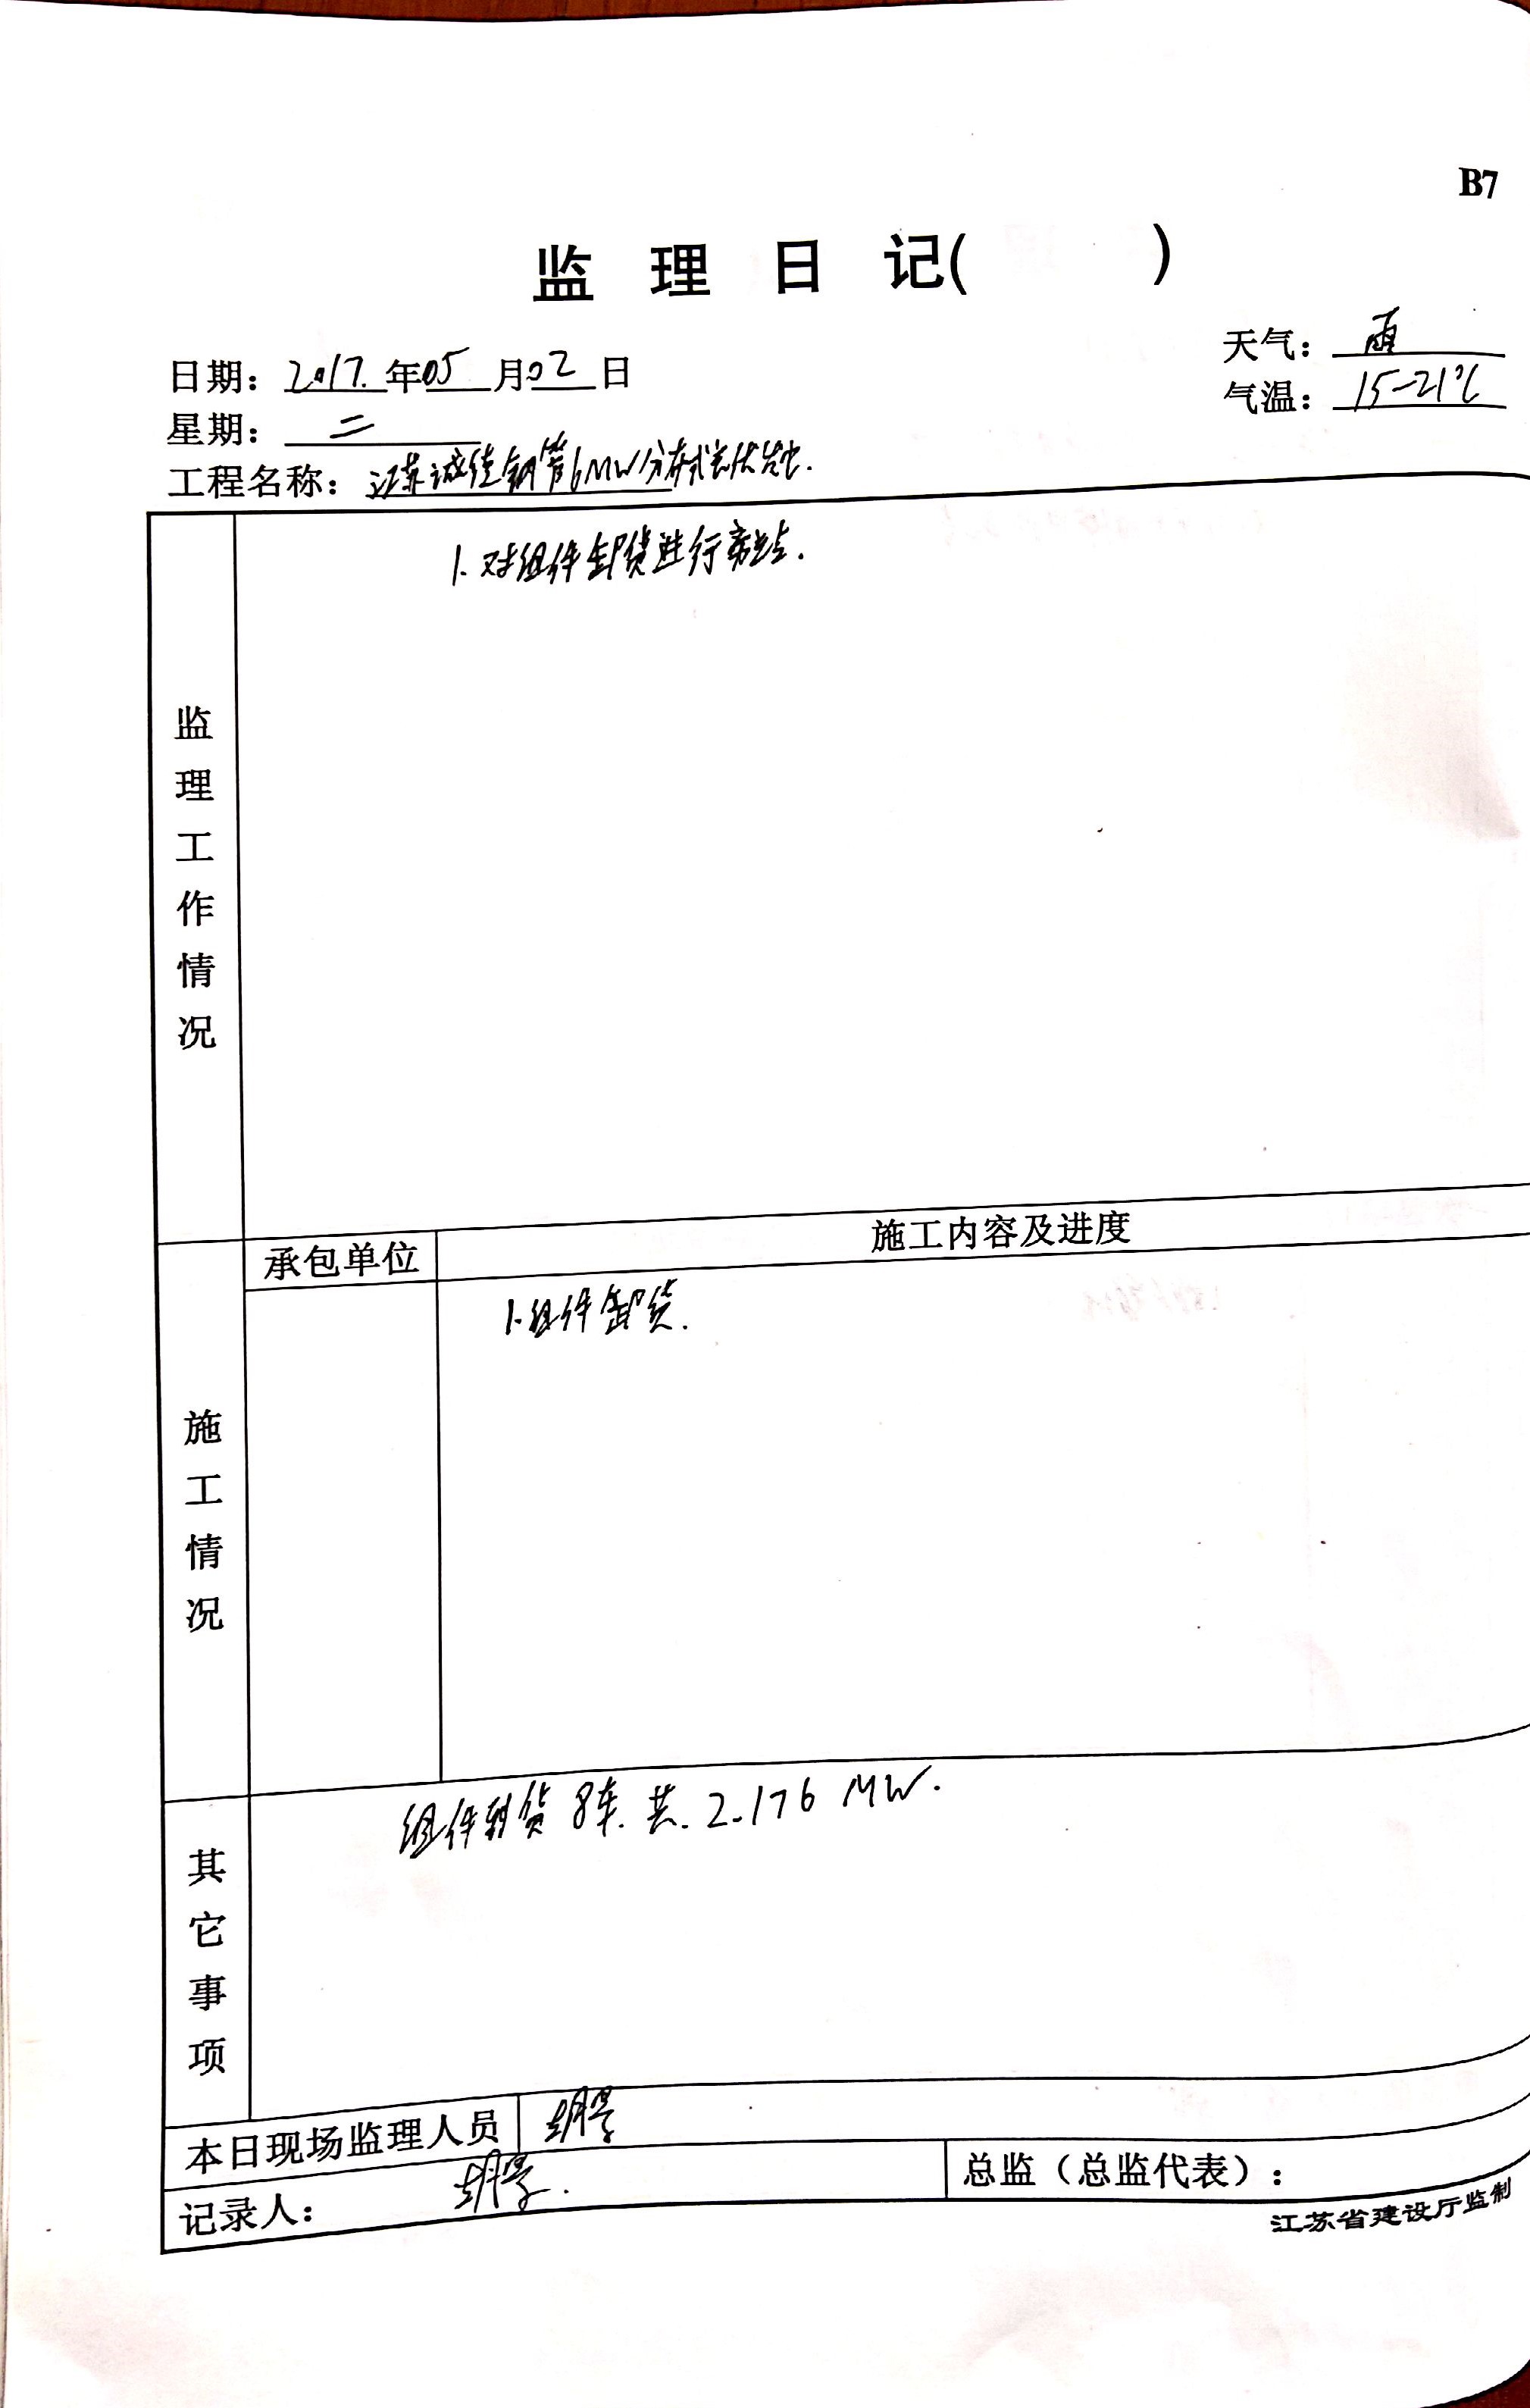 B7
监 理 日 记( )
日期：2017.年05月02日
天气：雨
星期：二
气温：15-21℃
工程名称：江苏诚佳钢管6MW分布式光伏发电.
监理工作情况
1. 对组件卸货进行旁站.
承包单位
施工内容及进度
施工情况
1.组件卸货.
其它事项
组件到货8车.共.2.176MW.
本日现场监理人员
记录人：
总监（总监代表）：
江苏省建设厅监制